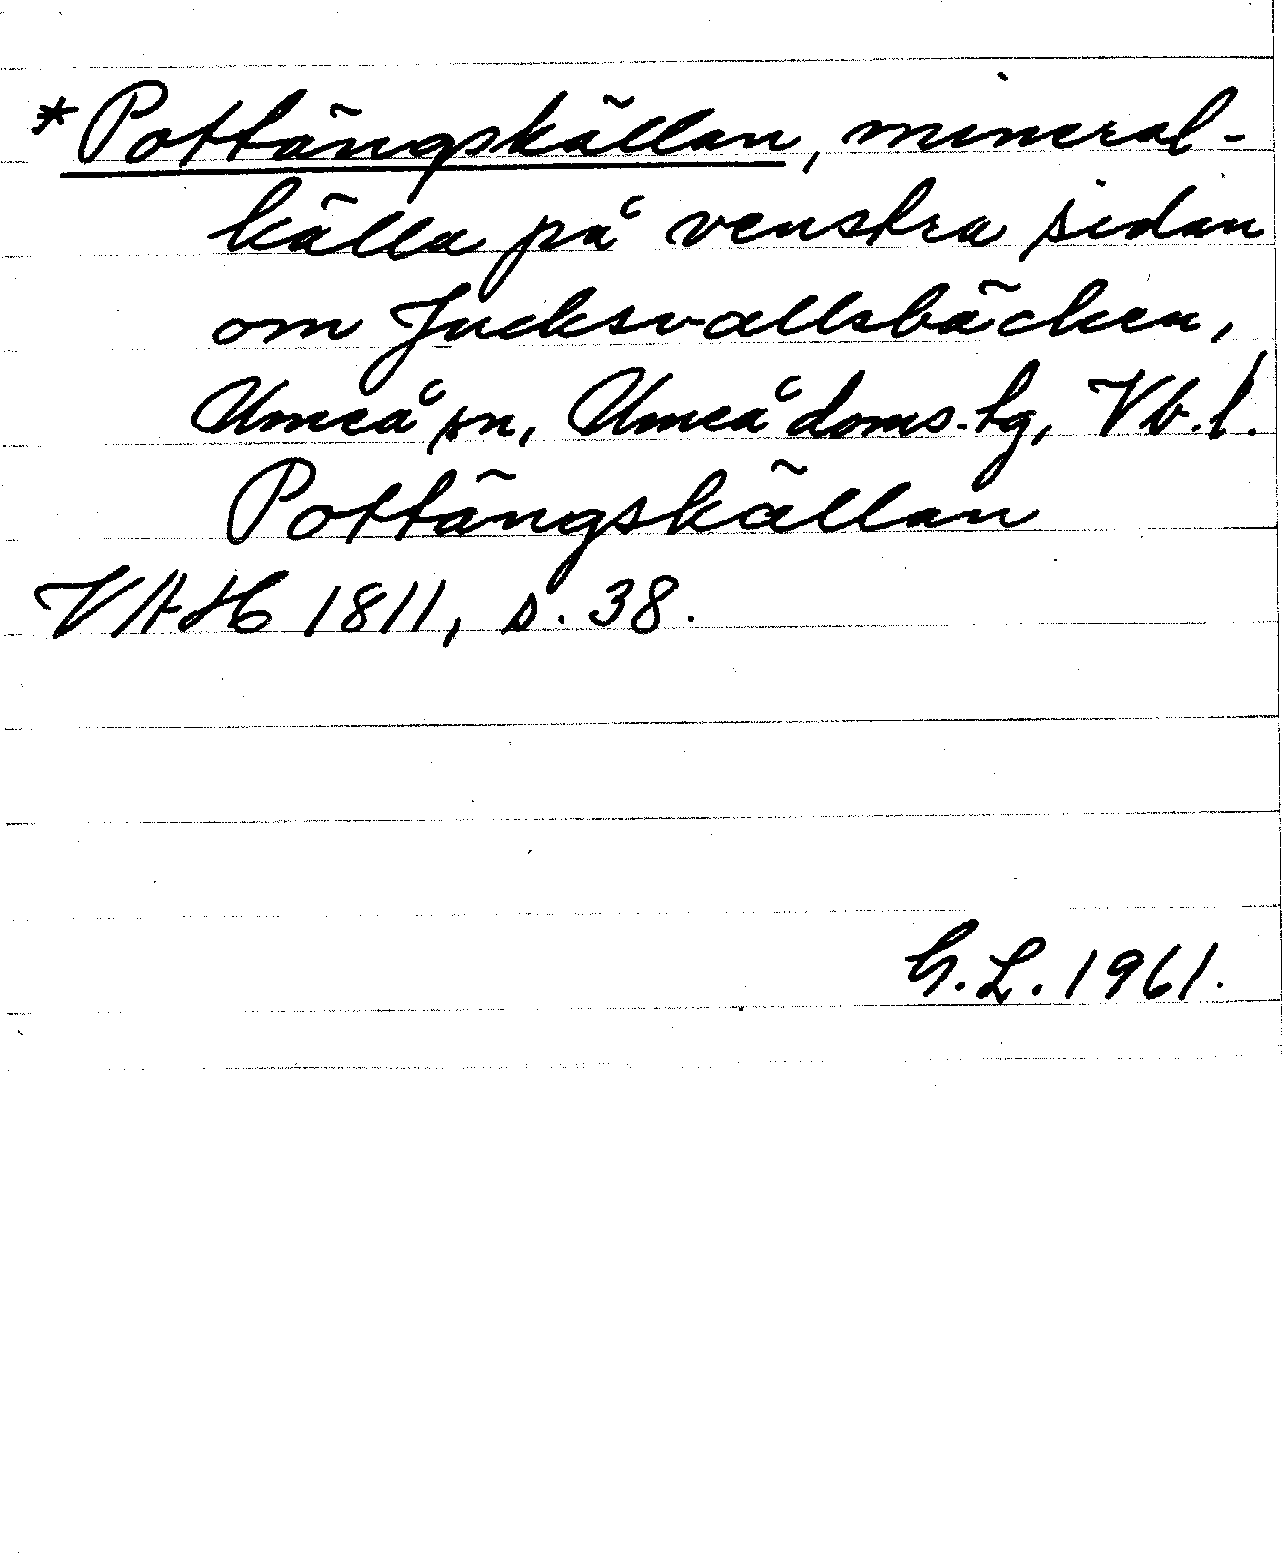 *Pottängskällan, mineral-
källa på venstra sidan
om Jucksvallsbäcken,
Umeå sn, Umeå doms.-tg, Vb. l.
Pottängskällan
VAH 1811, s. 38.
G. L. 1961.